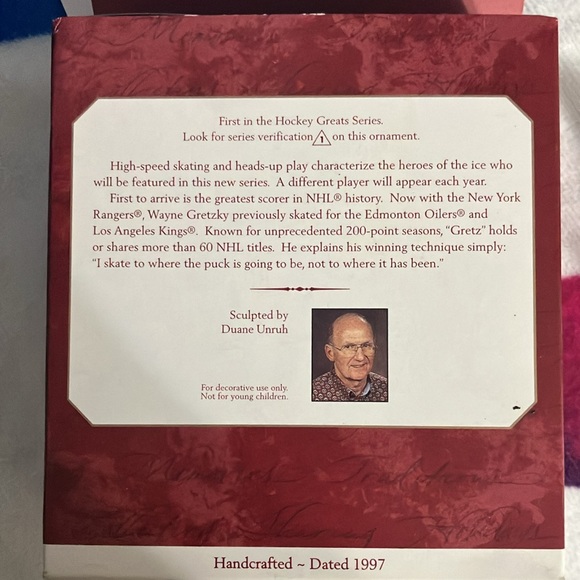 First in the Hockey Greats Series.
Look for series verification 1 on this ornament.
High-speed skating and heads-up play characterize the heroes of the ice who
will be featured in this new series. A different player will appear each year.
First to arrive is the greatest scorer in NHL® history. Now with the New York
Rangers®, Wayne Gretzky previously skated for the Edmonton Oilers® and
Los Angeles Kings®. Known for unprecedented 200-point seasons, “Gretz” holds
or shares more than 60 NHL titles. He explains his winning technique simply:
“I skate to where the puck is going to be, not to where it has been.”
Sculpted by
Duane Unruh
For decorative use only.
Not for young children.
Memories Traditions
Handcrafted ~ Dated 1997